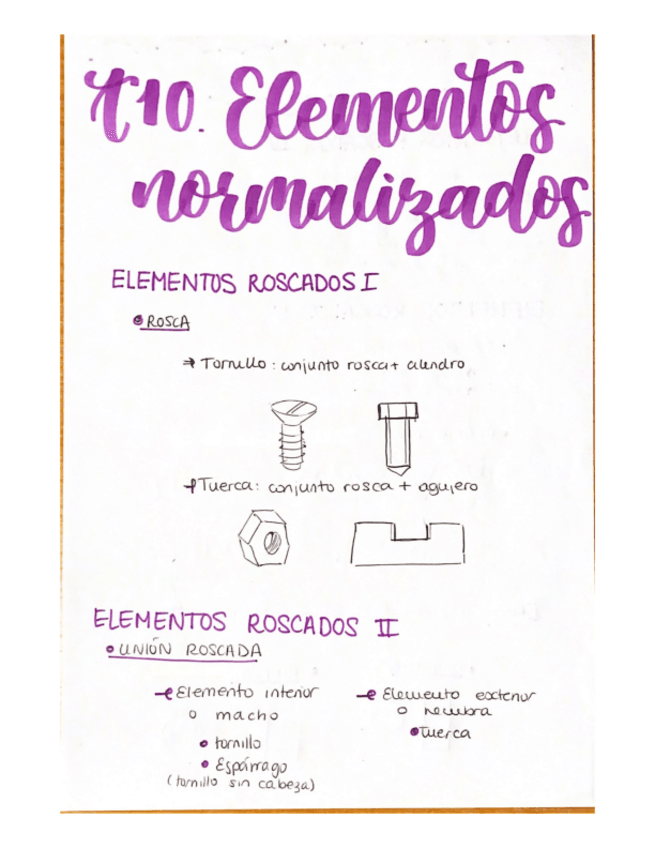 T10. Elementos
normalizados
ELEMENTOS ROSCADOS I
ROSCA
→ Tornillo : conjunto rosca + cilindro
→ Tuerca : conjunto rosca + agujero
ELEMENTOS ROSCADOS II
UNIÓN ROSCADA
Elemento interior
o macho
• tornillo
• Espárrago
(tornillo sin cabeza)
Elemento exterior
o hembra
• Tuerca